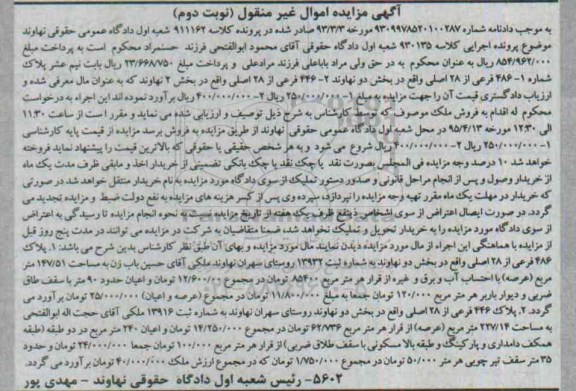 آگهی مزایده اموال غیر منقول (نوبت دوم)
به موجب دادنامه شماره ۹۳۰۹۹۷۸۵۲۰۱۰۰۲۸۷ مورخه ۹۳/۳/۳ صادر شده در پرونده کلاسه ۹۱۱۱۶۲ شعبه اول دادگاه عمومی حقوقی نهاوند
موضوع پرونده اجرایی کلاسه ۹۳۰۱۳۵ شعبه اول دادگاه حقوقی آقای محمود ابوالفتحی فرزند حسنمراد محکوم است به پرداخت مبلغ
۸۵۴/۹۶۲/۰۰۰ ریال به عنوان محکوم به در حق ولی مراد باباعلی فرزند مرادعلی و پرداخت مبلغ ۲۳/۶۶۸/۷۵۰ ریال بابت نیم عشر پلاک
شماره ۱- ۴۸۶ فرعی از ۲۸ اصلی واقع در بخش دو نهاوند ۲- ۴۴۶ فرعی از ۲۸ اصلی واقع در بخش ۲ نهاوند که به عنوان مال معرفی شده و
ارزیاب دادگستری قیمت آن را جهت مزایده به مبلغ ۱- ۲۵۰/۰۰۰/۰۰۰ ریال ۲- ۴۰۰/۰۰۰/۰۰۰ ریال برآورد نموده اند این اجراء به درخواست
محکوم له اقدام به فروش ملک موصوف که توسط کارشناس به شرح ذیل توصیف و ارزیابی شده می نماید و مقرر است از ساعت ۱۱:۳۰
الی ۱۲:۳۰ مورخه ۹۵/۴/۱۳ در محل شعبه اول دادگاه عمومی حقوقی نهاوند از طریق مزایده به فروش برسد مزایده از قیمت پایه کارشناسی
۱- ۲۵۰/۰۰۰/۰۰۰ ریال ۲- ۴۰۰/۰۰۰/۰۰۰ ریال شروع می شود و به هر شخص حقیقی یا حقوقی که بالاترین قیمت را پیشنهاد نماید فروخته
خواهد شد ۱۰ درصد وجه مزایده فی المجلس بصورت نقد یا چک نقد یا چک بانکی تضمینی از خریدار اخذ و مابقی ظرف مدت یک ماه
از خریدار وصول و پس از انجام مراحل قانونی و صدور دستور تملیک از سوی دادگاه مورد مزایده به نام خریدار منتقل خواهد شد در صورتی
که خریدار در مهلت یک ماه مقرر تهیه وجه مزایده را نپردازد، سپرده وی پس از کسر هزینه های مزایده به نفع دولت ضبط و مزایده تجدید می
گردد. در صورت ایصال اعتراض از سوی اشخاص ذینفع ظرف یک هفته از تاریخ مزایده نسبت به نحوه انجام مزایده تا رسیدگی به اعتراض
از سوی دادگاه مورد مزایده را به خریدار تحویل و تملیک نخواهد شد، ضمنا متقاضیان به شرکت در مزایده می توانند در مدت پنج روز قبل
از مزایده با هماهنگی این اجراء از مال مورد مزایده دیدن نمایند. مال مورد مزایده و بهای آن طبق نظر کارشناس بدین شرح می باشد: ۱. پلاک
۴۸۶ فرعی از ۲۸ اصلی واقع در بخش دو نهاوند به شماره ثبت ۱۳۹۳۲ روستای سهران نهاوند ملکی آقای حسین باب زن به مساحت ۱۴۷/۵۱ متر
مربع (عرصه) با احتساب آب و برق و غیره از قرار هر متر مربع ۸۵۴۰۰ تومان در مجموع ۱۲/۶۰۰/۰۰۰ تومان و اعیان حدود ۹۰ متر با سقف طاق
ضربی و دیوار باربر هر متر مربع ۱۲۰/۰۰۰ تومان جمعا به مبلغ ۱۱/۸۰۰/۰۰۰ تومان در مجموع (عرصه و اعیان) ۲۵/۰۰۰/۰۰۰ تومان برآورد می
گردد. ۲. پلاک ۴۴۶ فرعی از ۲۸ اصلی واقع در بخش دو نهاوند روستای سهران نهاوند به شماره ثبت ۱۳۹۱۶ ملکی آقای حجت اله ابوالفتحی
به مساحت ۲۲۷/۱۴ متر مربع (عرصه) از قرار هر متر مربع ۶۲/۷۳۶ تومان در مجموع ۱۴/۲۵۰/۰۰۰ تومان و اعیان ۲۴۰ متر مربع در دو طبقه (طبقه
همکف دامداری و پارکینگ و طبقه بالا مسکونی با سقف طلاق ضربی) از قرار هر متر مربع ۱۰۰/۰۰۰ تومان جمعا ۲۴/۰۰۰/۰۰۰ تومان و حدود
۳۵ متر سقف تیر چوبی هر متر ۵۰/۰۰۰ تومان در مجموع ۱/۷۵۰/۰۰۰ تومان که در مجموع ارزش ملک ۴۰/۰۰۰/۰۰۰ تومان برآورد می گردد.
۵۶۰۲- رئیس شعبه اول دادگاه حقوقی نهاوند - مهدی پور